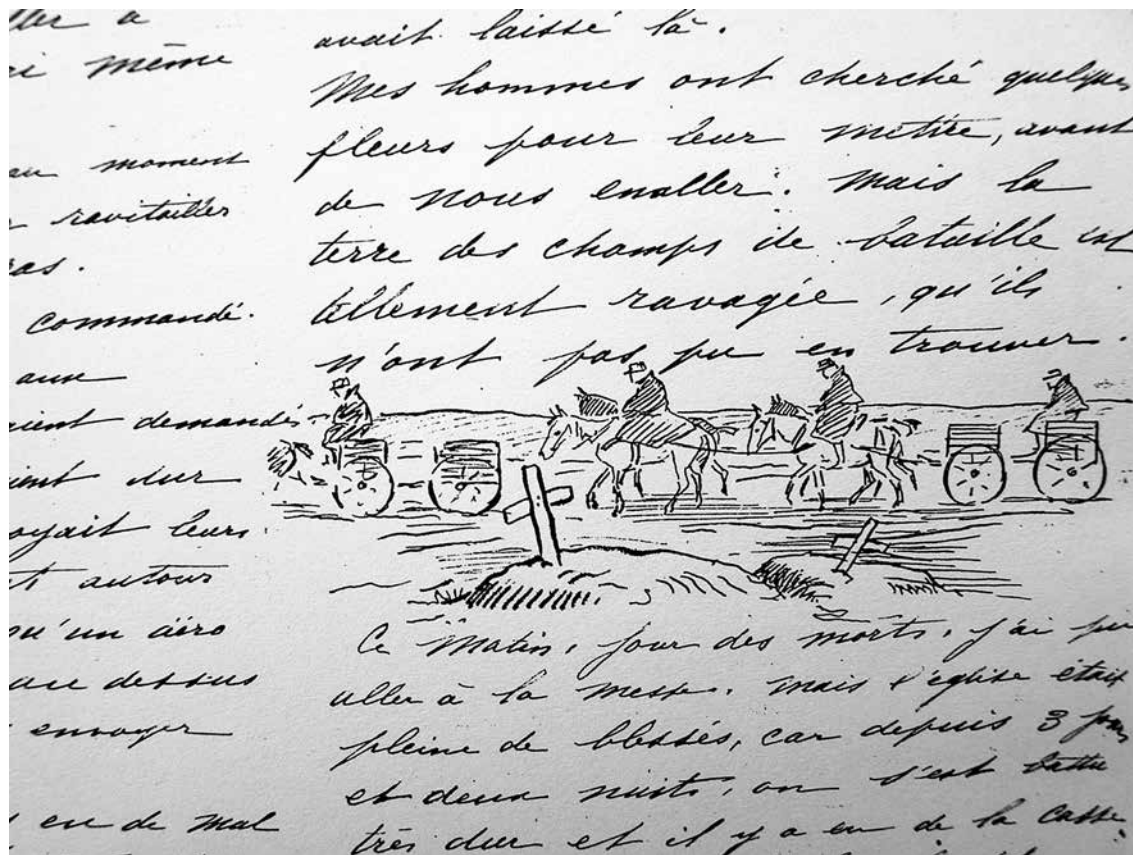 ller a
même
au moment
ravitailler
commandé.
aux
aient demandés
dur
oyait leurs
autour
qu'un aéro
dessus
envoyer
eu de mal
avait laissé là.
Mes hommes ont cherché quelques
fleurs pour leur mettre, avant
de nous enaller. Mais la
terre des champs de bataille est
tellement ravagée, qu'ils
n'ont pas pu en trouver.
Ce Matin, jour des morts, j'ai pu
aller à la messe. Mais l'église était
pleine de blessés, car depuis 3 jours
et deux nuits, on s'est battu
très dur et il y a eu de la casse